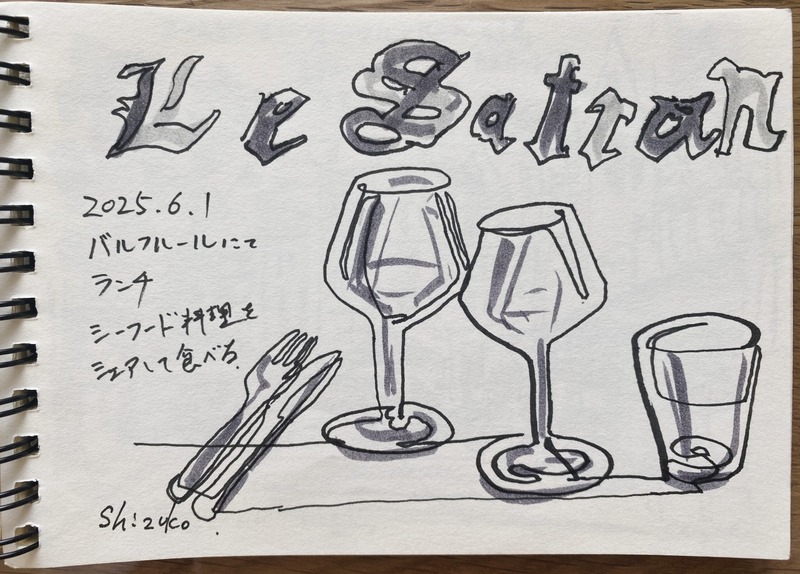 Le Safran
2025.6.1
バルフルールにて
ランチ
シーフード料理を
シェアして食べる.
Shizuco.